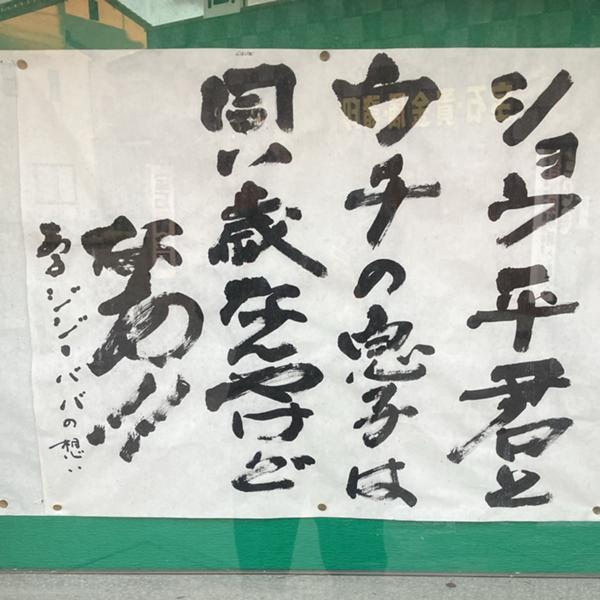 ショウ平君と
ウチの息子は
同い歳なんやけど
なあ!!!
あるジジーババの想い